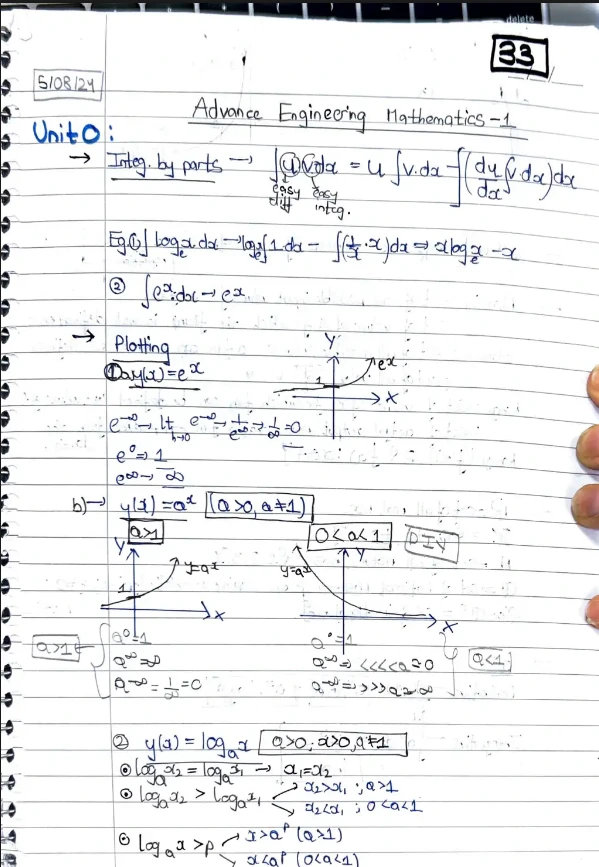 delete
33
5/08/24
Advance Engineering Mathematics-1
Unit 0:
→ Integ. by parts → ∫u v dx = u ∫v.dx - ∫(du/dx ∫v.dx)dx
easy diff easy integ.
Eg ① ∫logₑx.dx → logₑx∫1.dx - ∫(1/x · x)dx ⇒ x logₑx - x
② ∫eˣ.dx → eˣ
→ Plotting
① a) y(x) = eˣ
Y
eˣ
1
X
e⁻∞ → lt h→0 e⁻∞ → 1/e∞ → 1/∞ = 0
e⁰ ⇒ 1
e∞ → ∞
b) → y(x) = aˣ [(a>0, a≠1)]
a>1 0<a<1 DIY
Y y=aˣ y=aˣ Y
1
X X
a>1 a⁰=1 a⁰=1
a∞ ⇒ ∞ a∞ ⇒ <<<<a ≈ 0 a<1
a⁻∞ = 1/∞ = 0 a⁻∞ ⇒ >>>a ≈ ∞
② y(x) = logₐx a>0; x>0, a≠1
⊙ logₐx₂ = logₐx₁ → x₁=x₂
⊙ logₐx₂ > logₐx₁ → x₂>x₁ ; a>1
→ x₂<x₁ ; 0<a<1
⊙ logₐx > p → x>aᵖ (a>1)
→ x<aᵖ (0<a<1)